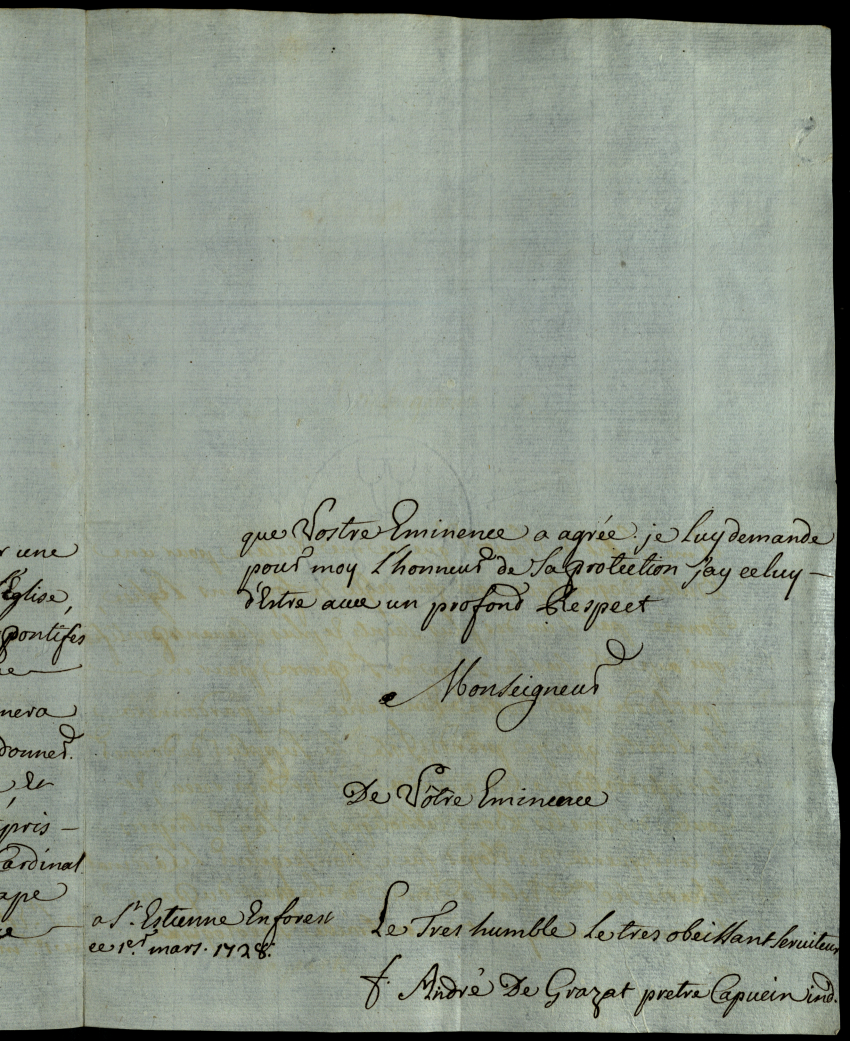 r une
Eglise,
pontifes
nera
donner.
&
pris –
Cardinal
ape
que Vostre Eminence a agrée. je luy demande
pour moy L'honneur de Sa protection j'ay celuy –
d'Estre avec un profond Respect
Monseigneur
De Vôtre Eminence
a St. Estienne En forest
ce 1er. mars. 1728.
Le Tres humble Le tres obeissant serviteur
f. André De Grazat pretre Capucin ind.